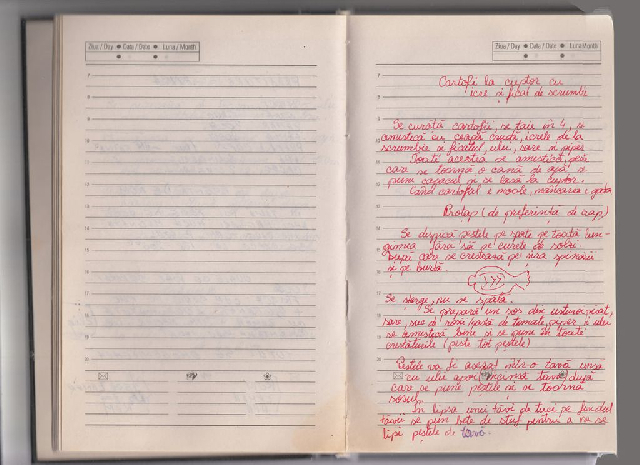 Ziua / Day Data / Date Luna / Month
Ziua / Day Data / Date Luna / Month
Cartofi la cuptor cu
icre și ficat de scrumbie
Se curăță cartofii, se taie în 4, se
amestecă cu ceapă crudă, icrele de la
scrumbie și ficatul, ulei, sare și piper
Toate acestea se amestecă, peste
care se toarnă o cană de apă și
pune capacul și se lasă la cuptor.
Când cartoful e moale, mâncarea e gata
Protap (de preferință de crap)
Se despică peștele pe spate pe toată lun-
gimea fără să se curețe de solzi
după care se crestează pe șira spinării
și pe burtă
Se șterge, nu se spală.
Se prepară un sos din usturoi pisat,
sare, suc de roșii, pastă de tomate, piper și ulei
se amestecă bine și se pune în toate
crestăturile (peste tot peștele)
Peștele va fi așezat într-o tavă unsă
cu ulei apoi tava după
care se pune peștele și se toarnă
sosul.
În lipsa unei tăvi de tuci pe fundul
tăvii se pun bețe de stuf pentru a nu se
lipi peștele de tavă.